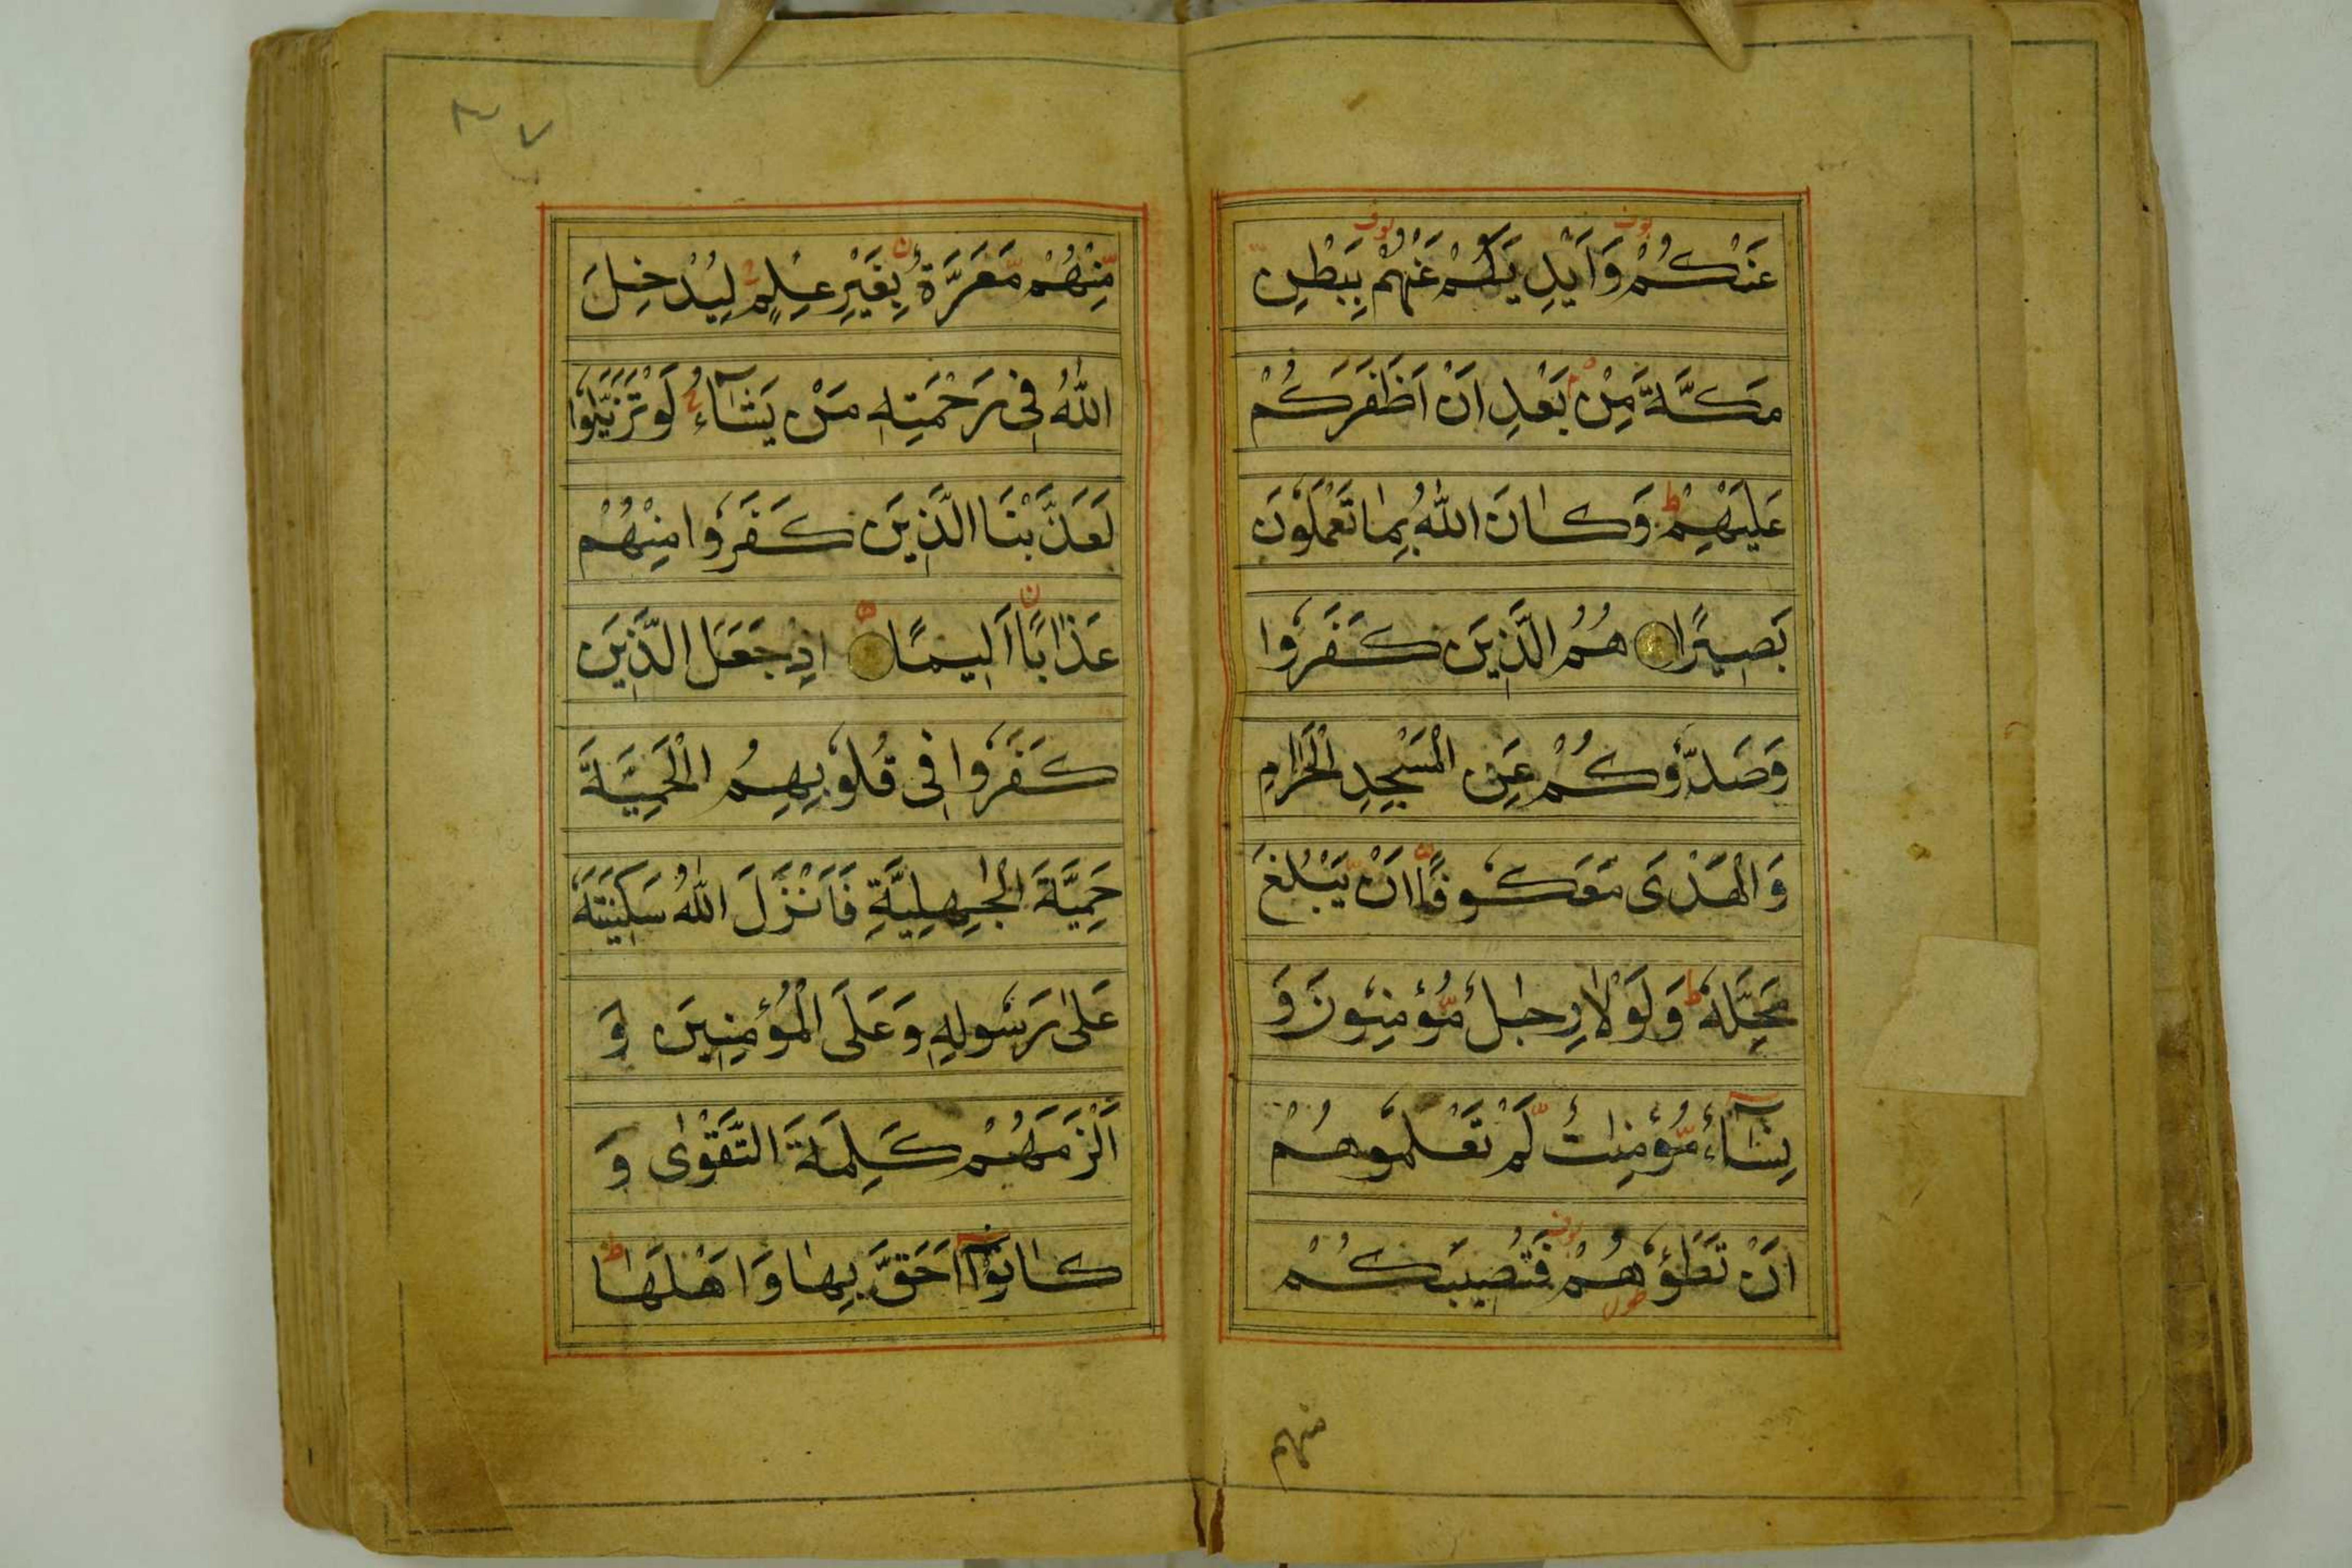 عَنْكُمْ وَاَيْدِيَكُمْ عَنْهُمْ بِبَطْنِ
مَكَّةَ مِنْ بَعْدِ اَنْ اَظْفَرَكُمْ
عَلَيْهِمْ ط وَكَانَ اللّٰهُ بِمَا تَعْمَلُوْنَ
بَصِيْرًا هُمُ الَّذِيْنَ كَفَرُوْا
وَصَدُّوْكُمْ عَنِ الْمَسْجِدِ الْحَرَامِ
وَالْهَدْىَ مَعْكُوْفًا اَنْ يَّبْلُغَ
مَحِلَّهٗ ط وَلَوْلَا رِجَالٌ مُّؤْمِنُوْنَ وَ
نِسَآءٌ مُّؤْمِنٰتٌ لَّمْ تَعْلَمُوْهُمْ
اَنْ تَطَئُوْهُمْ فَتُصِيْبَكُمْ
منهم
مِّنْهُمْ مَّعَرَّةٌ بِغَيْرِ عِلْمٍ لِيُدْخِلَ
اللّٰهُ فِىْ رَحْمَتِهٖ مَنْ يَشَآءُ لَوْ تَزَيَّلُوْا
لَعَذَّبْنَا الَّذِيْنَ كَفَرُوْا مِنْهُمْ
عَذَابًا اَلِيْمًا اِذْ جَعَلَ الَّذِيْنَ
كَفَرُوْا فِىْ قُلُوْبِهِمُ الْحَمِيَّةَ
حَمِيَّةَ الْجٰهِلِيَّةِ فَاَنْزَلَ اللّٰهُ سَكِيْنَتَهٗ
عَلٰى رَسُوْلِهٖ وَعَلَى الْمُؤْمِنِيْنَ وَ
اَلْزَمَهُمْ كَلِمَةَ التَّقْوٰى وَ
كَانُوْٓا اَحَقَّ بِهَا وَاَهْلَهَا ط